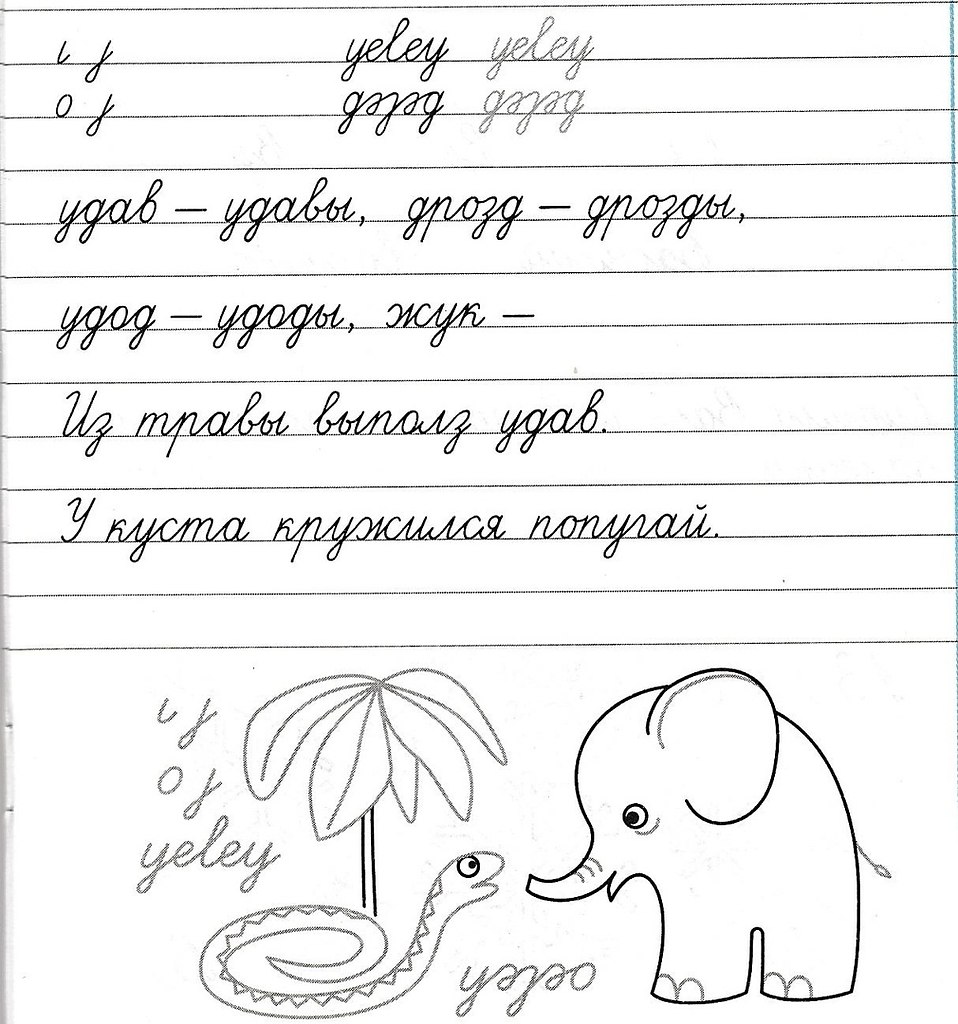 ι ȷ уеlеу уеlеу
о ȷ дəȷəд дəȷəд
удав – удавы, дрозд – дрозды,
удод – удоды, жук –
Из травы выполз удав.
У куста кружился попугай.
ι ȷ
о ȷ
уеlеу